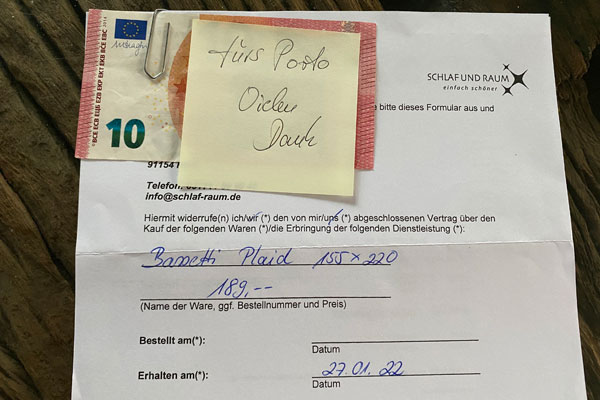 BCE ECB ЕЦБ EZB EKP EKT EKB BĊE EBC
10
fürs Porto
Vielen
Dank
SCHLAF UND RAUM
einfach schöner
bitte dieses Formular aus und
91154
Telefon:
info@schlaf-raum.de
Hiermit widerrufe(n) ich/wir (*) den von mir/uns (*) abgeschlossenen Vertrag über den
Kauf der folgenden Waren (*)/die Erbringung der folgenden Dienstleistung (*):
Bassetti Plaid 155 x 220
189,--
(Name der Ware, ggf. Bestellnummer und Preis)
Bestellt am(*):
Datum
Erhalten am(*):
27.01.22
Datum